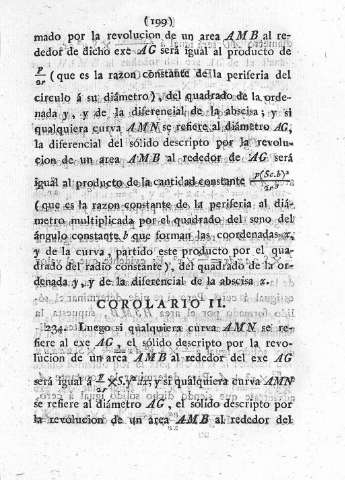 (199)
mado por la revolucion de un area AMB al re-
dedor de dicho exe AG será igual al producto de
p/2r (que es la razon constante de la periferia del
circulo á su diámetro), del quadrado de la orde-
nada y, y de la diferencial de la abscisa; y si
qualquiera curva AMN se refiere al diámetro AG,
la diferencial del sólido descripto por la revolu-
cion de un area AMB al rededor de AG será
igual al producto de la cantidad constante p(Sc.b)²/2r³
(que es la razon constante de la periferia al diá-
metro multiplicada por el quadrado del seno del
ángulo constante b que forman las coordenadas x,
y de la curva, partido este producto por el qua-
drado del radio constante), del quadrado de la or-
denada y, y de la diferencial de la abscisa x.
COROLARIO II.
234. Luego si qualquiera curva AMN se re-
fiere al exe AG, el sólido descripto por la revo-
lucion de un area AMB al rededor del exe AG
será igual á p/2r × S.y²dx; y si qualquiera curva AMN
se refiere al diámetro AG, el sólido descripto por
la revolucion de un area AMB al rededor del